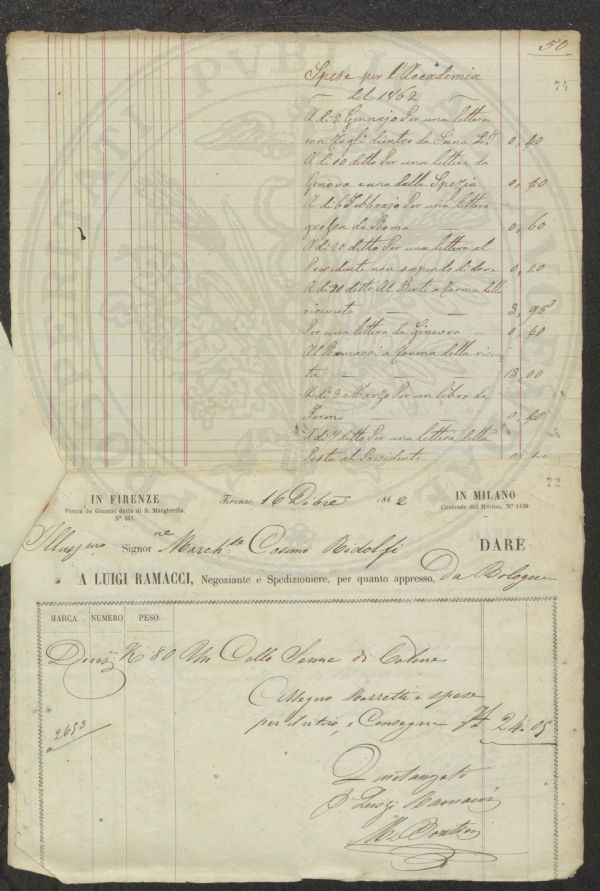 50
74
Spese per l'Accademia
del 1862
A di 2 Gennajo Per una lettera
con fogli dentro da Siena 0,40
A di 10 detto Per una lettera da
Genova e una dalla Spezia 0,40
A di 6 Febbrajo Per una lettera
grossa da Roma 0,60
A di 20 detto Per una lettera al
Presidente non sapendo di dove 0,20
A di 20 detto Al Berti a forma della
ricevuta 3,95
Per una lettera da Ginevra 0,40
Al Ramacci a forma della ricevu-
ta 13,00
A di 3 Marzo Per un libro da
Fermo 0,40
A di 7 detto Per una lettera della
Posta al Presidente
72
IN FIRENZE
Piazza de' Giuochi detta di S. Margherita.
N° 651.
Firenze, 16 Dibre 1862
IN MILANO
Contrada del Marino, N° 1134
Illussmo Signor ne Marchse Cosimo Ridolfi DARE
A LUIGI RAMACCI, Negoziante e Spedizioniere, per quanto appresso, Da Bologna
MARCA. NUMERO PESO.
K 80 Un Collo Seme di Cotone
Assegno Marretti e spese
per il ritiro, e Consegna 24.05
2653
Quietanzato
P Luigi Ramacci